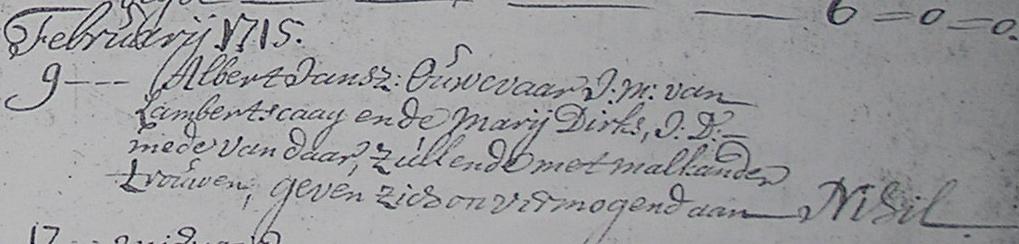 6=0=0.
Februarij 1715.
9--- Albert Jansz: Ouwevaar J:m: van
Lambertscaag ende Marij Dirks, J:D:=
mede van daar, zullende met malkander
trouwen, geven zich onvermogend aan — Nihil.
17